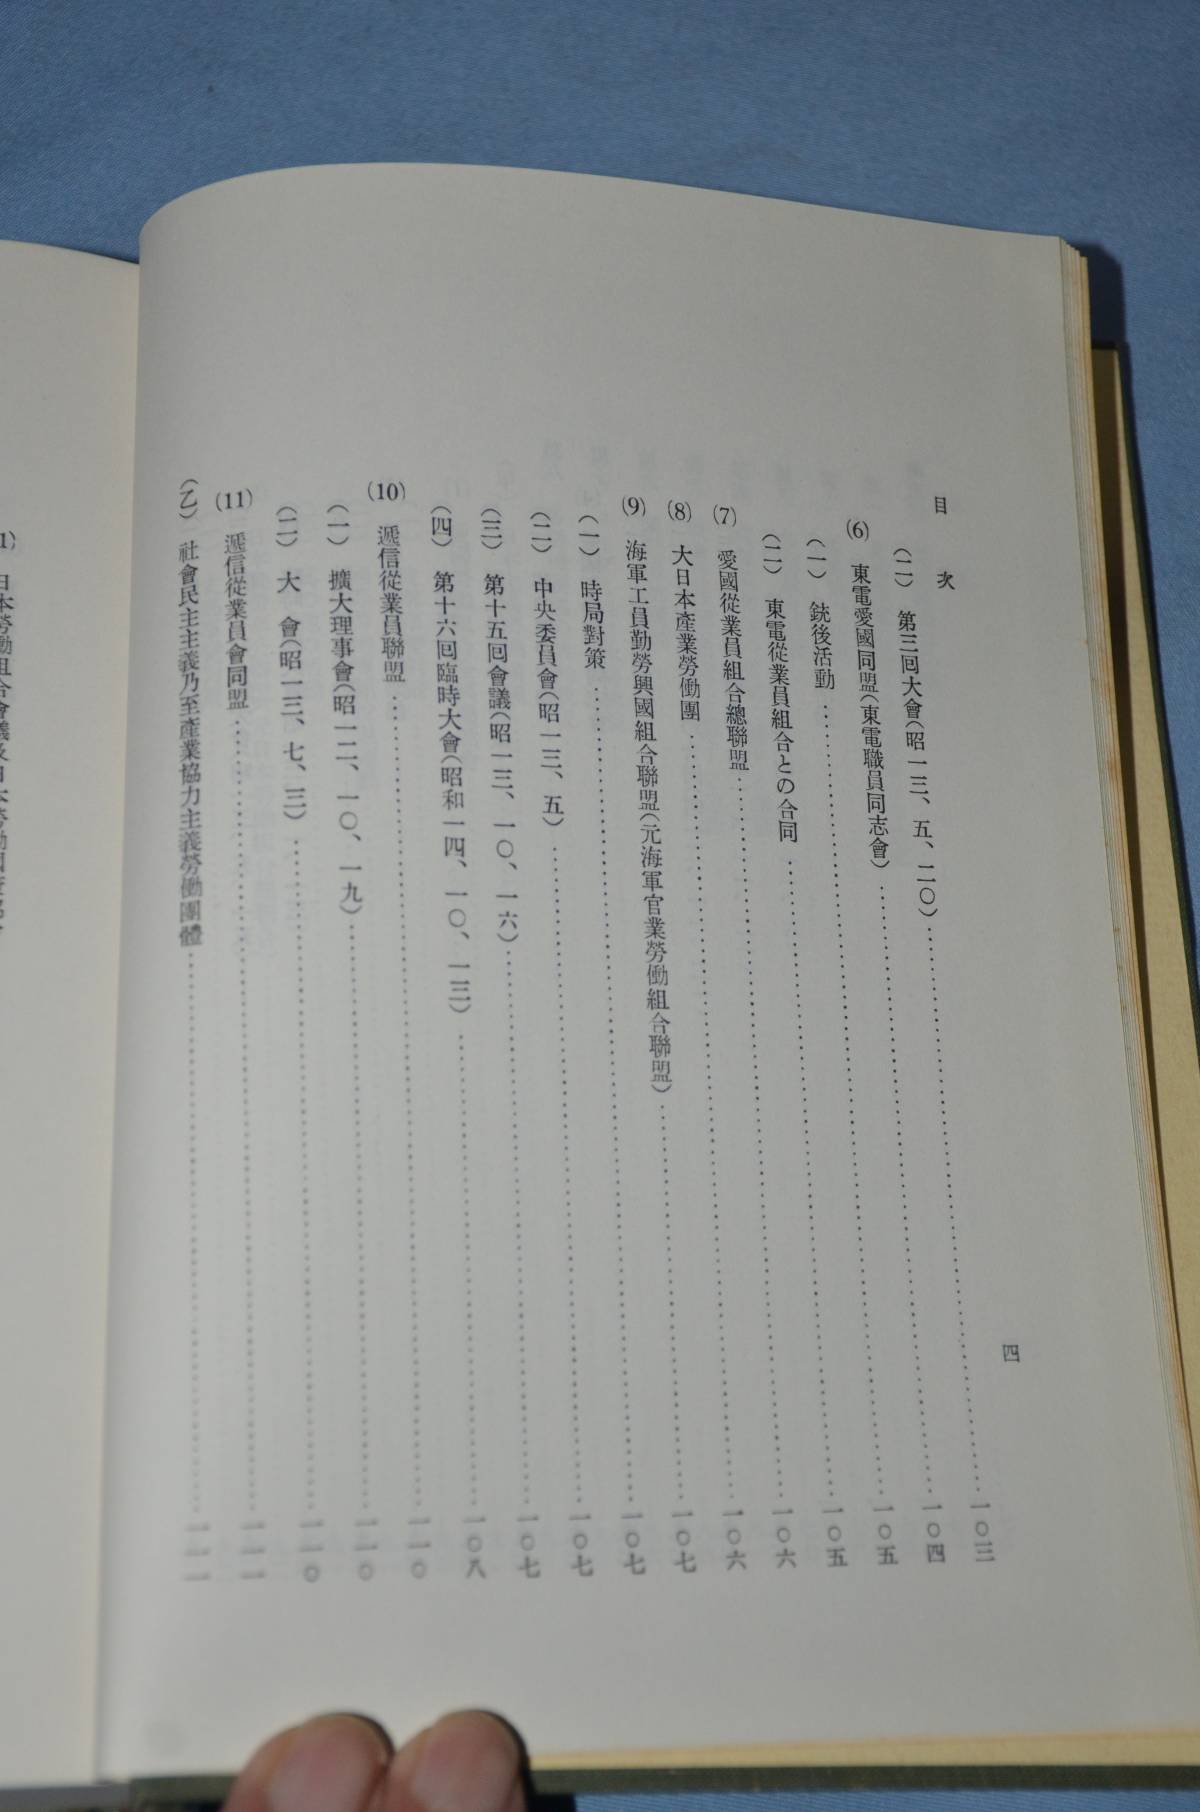 目次
四
(二) 第三回大會(昭一三、五、二〇)…………一〇三
(6) 東電愛國同盟(東電職員同志會)…………一〇四
(一) 銃後活動…………一〇五
(二) 東電從業員組合との合同…………一〇五
(7) 愛國從業員組合總聯盟…………一〇六
(8) 大日本產業勞働團…………一〇六
(9) 海軍工員勤勞興國組合聯盟(元海軍官業勞働組合聯盟)…………一〇七
(一) 時局對策…………一〇七
(二) 中央委員會(昭一三、五)…………一〇七
(三) 第十五回會議(昭一三、一〇、一六)…………一〇七
(四) 第十六回臨時大會(昭和一四、一〇、一三)…………一〇八
(10) 遞信從業員聯盟…………一一〇
(一) 擴大理事會(昭一二、一〇、一九)…………一一〇
(二) 大 會(昭一三、七、三)…………一一〇
(11) 遞信從業員會同盟…………一一一
(乙) 社會民主主義乃至產業協力主義勞働團體…………一一一